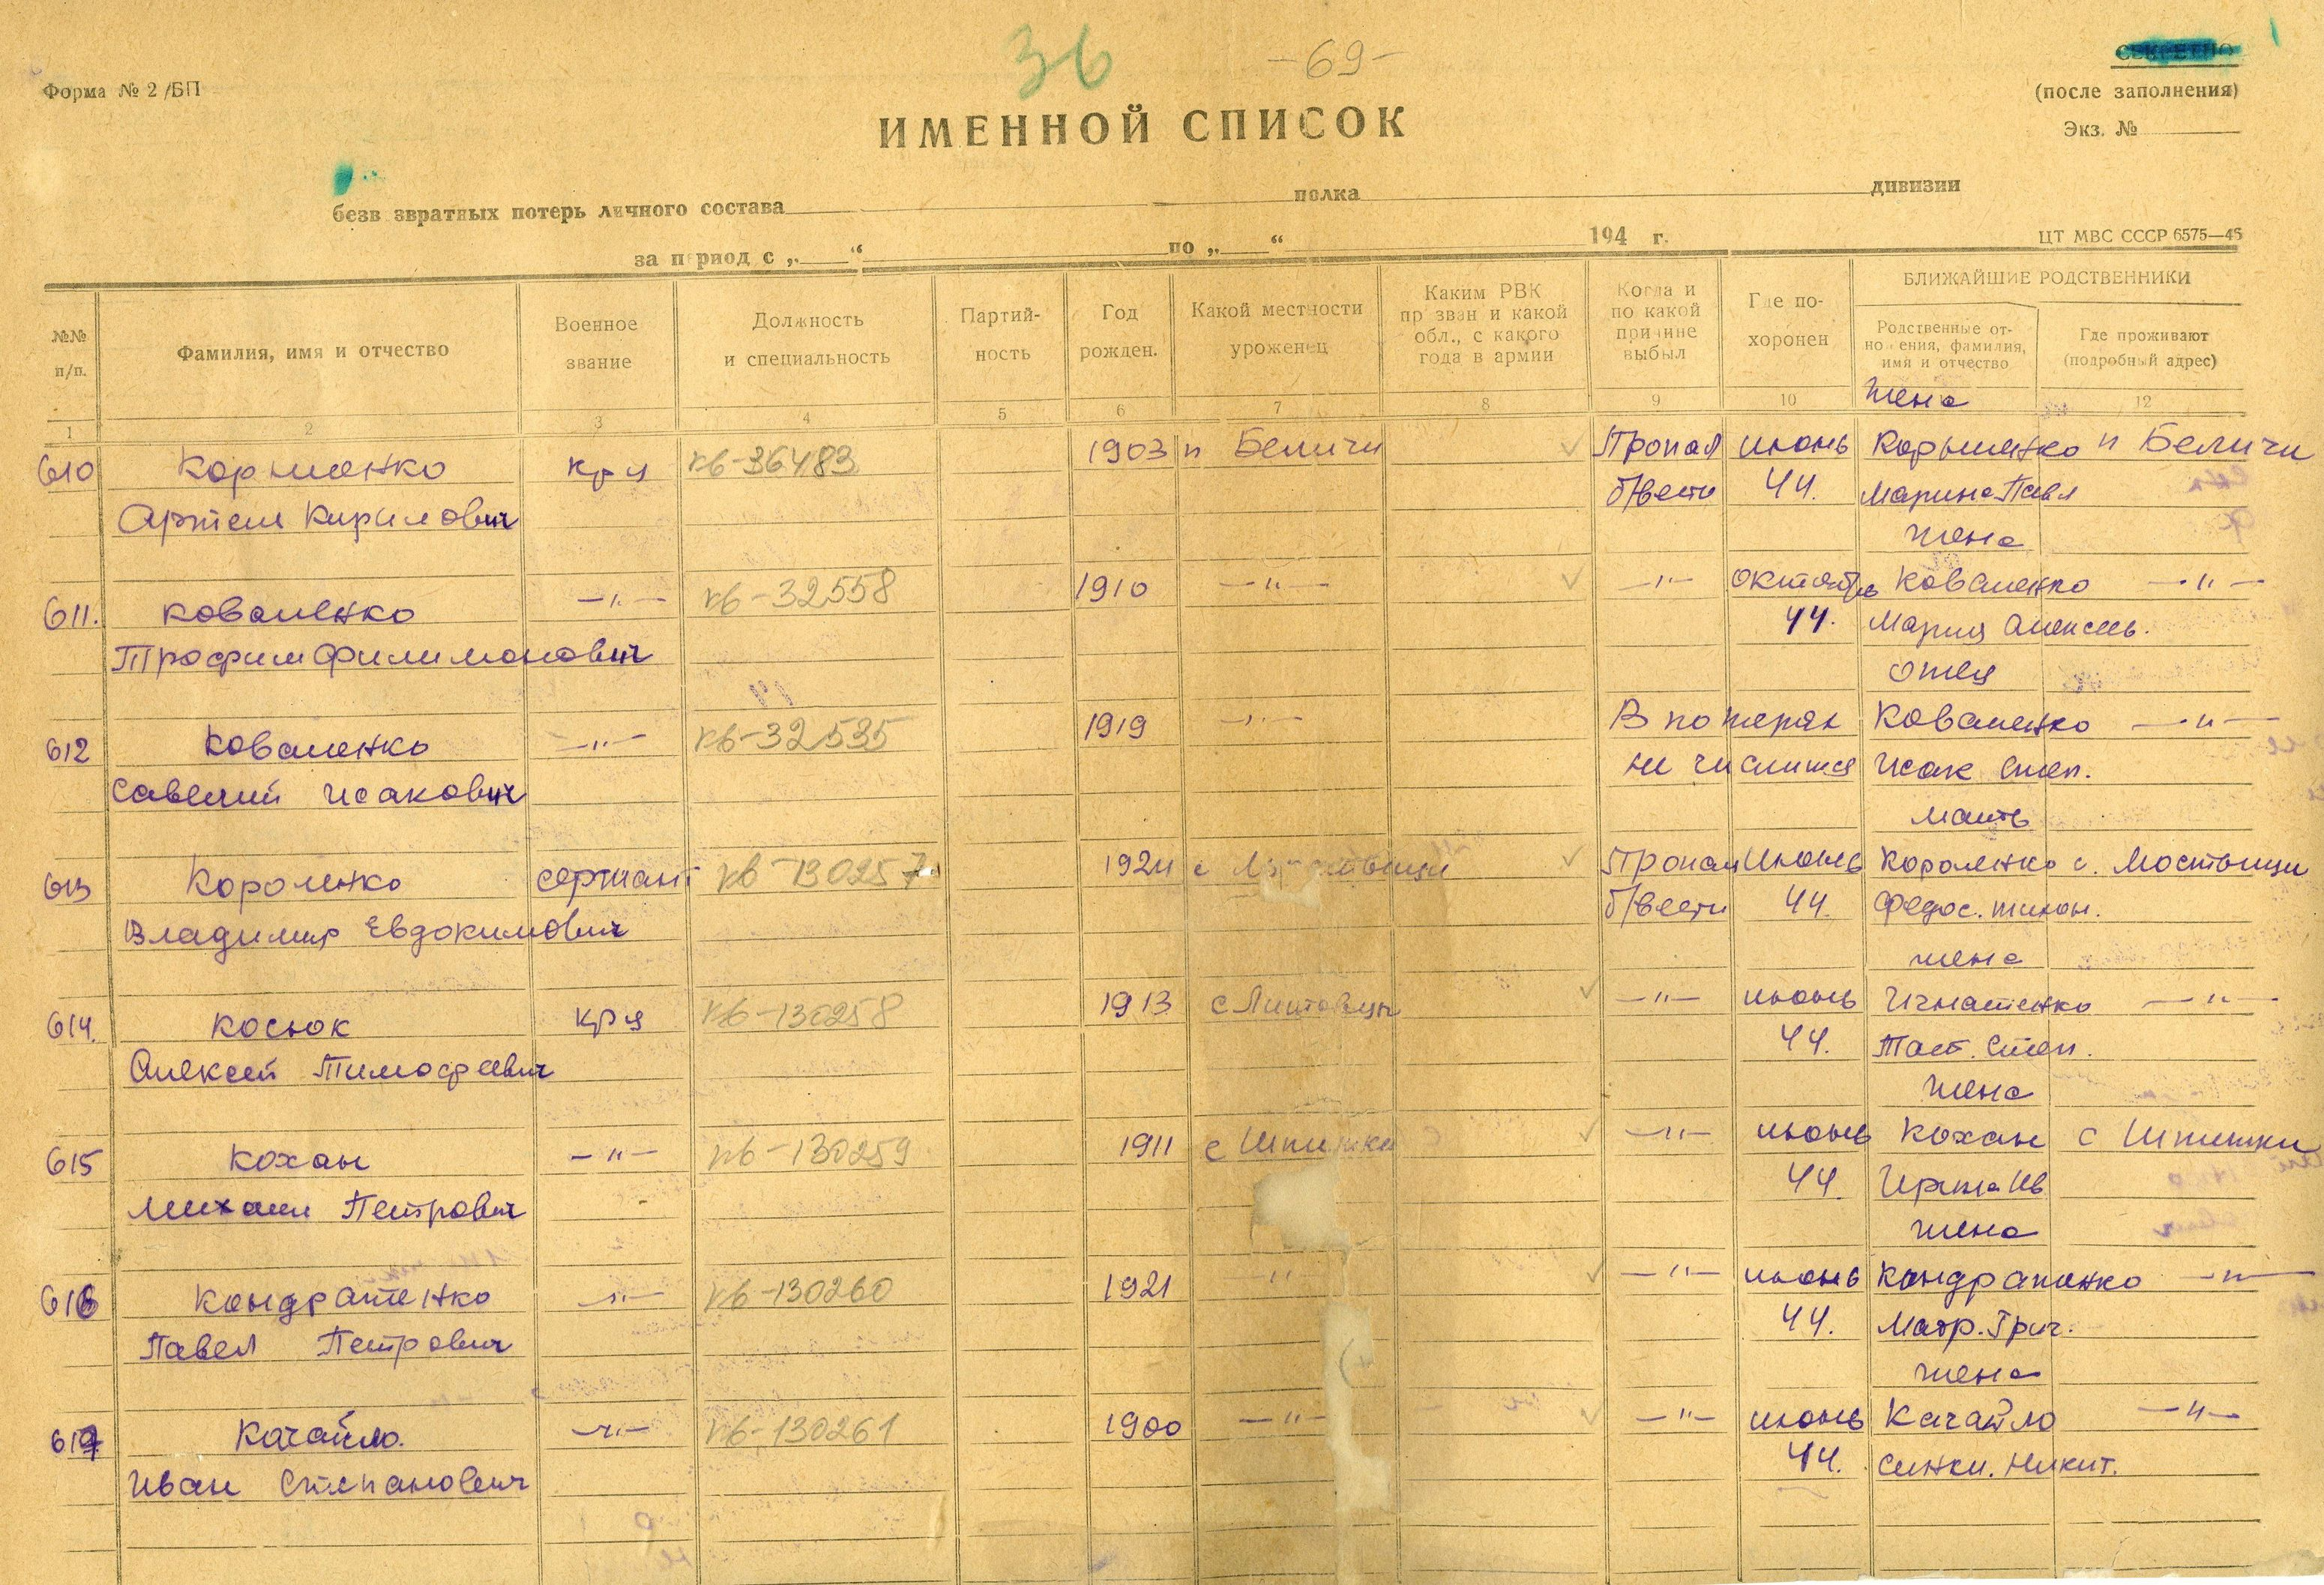 36 -69-
СЕКРЕТНО
Форма № 2/БП
(после заполнения)
Экз. №
ИМЕННОЙ СПИСОК
безв звратных потерь личного состава полка дивизии
за период с „ “ по „ “ 194 г.
ЦТ МВС СССР 6575—45
№№ п/п.
Фамилия, имя и отчество
Военное звание
Должность и специальность
Партий-ность
Год рожден.
Какой местности уроженец
Каким РВК призван и какой обл., с какого года в армии
Когда и по какой причине выбыл
Где по-хоронен
БЛИЖАЙШИЕ РОДСТВЕННИКИ
Родственные от-ношения, фамилия, имя и отчество
Где проживают (подробный адрес)
1 2 3 4 5 6 7 8 9 10 12
жена
610 кр-ц кв-36483 1903 п Беличи Пропал июнь п Беличи
Артем Кирилович б/вести 44. Марина Павл
жена
611. Коваленко —"— кв-32558 1910 —"— —"— октябрь Коваленко —"—
Трофим Филимонович 44. Мария Алексеев.
отец
612 Коваленко —"— кв-32535 1919 —"— В потерях Коваленко —"—
Савелий Исакович не числится Исак Степ.
мать
613 Короленко сержант кв-130257 1924 с Пропал июнь Короленко с. Мостыщи
Владимир Евдокимович б/вести 44 Федос. тихон.
жена
614. Косюк кр-ц кв-130258 1913 с —"— июнь Игнатенко —"—
Алексей Тимофеевич 44. Степ.
жена
615 Кохан —"— кв-130259 1911 с Шпитьки —"— июнь Кохан с Шпитьки
Михаил Петрович 44. Ив
жена
616 Кондратенко —"— кв-130260 1921 —"— —"— июнь Кондратенко —"—
Павел Петрович 44. Григ.
жена
617 Качайло. —"— кв-130261 1900 —"— —"— июнь Качайло —"—
Иван Степанович 44. Никит.